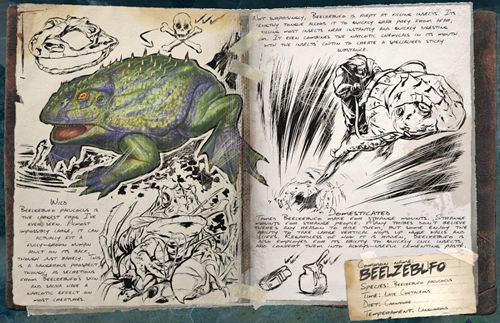 Wild
Beelzebufo palucocus is
the largest frog I've
ever seen. Almost
impossibly large, it can
actually fit a
fully-grown human
adult on its back,
though just barely. This
is a dangerous prospect
though, as secretions
from Beelzebufo's skin
and saliva have a
narcotic effect on
most creatures.
Not surprisingly, Beelzebufo is adept at killing insects. Its
lengthy tongue allows it to quickly grab prey from afar,
killing most insects near instantly and quickly ingesting
them. It even combines the narcotic chemicals in its mouth
with the insects chitin to create a specialized sticky
substance.
Domesticated
Tamed Beelzebufo make for strange mounts. Strange
mounts for strange people. Many tribes don't believe
there's any reason to ride them, but some enjoy the
ability to take large vertical jumps up high hills and
Beelzebufo is
also employed for its ability to quickly cull insects
and convert them into always-useful cementing paste.
Common Name
Beelzebufo
Species: Beelzebufo palucocus
Time: Late Cretaceous
Diet: Carnivore
Temperament: Languorous